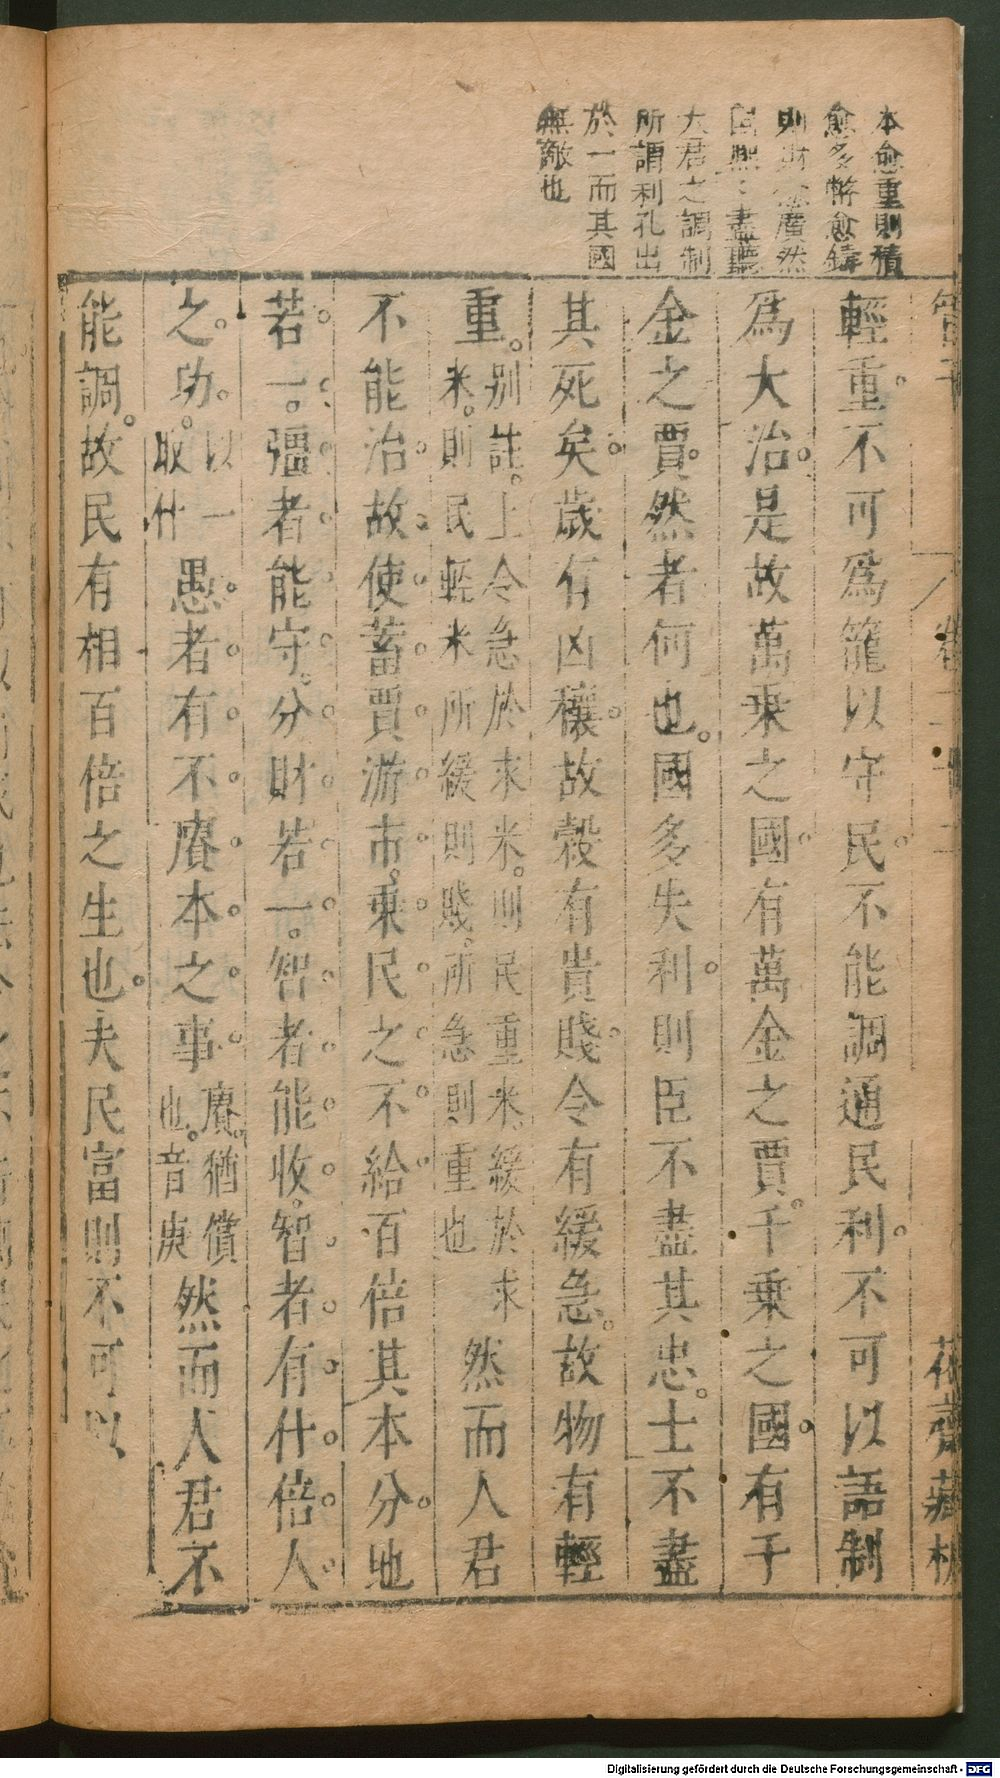 本愈重則積
愈多幣愈鑄
則財愈廣然
國無㆓盡聽
大君之調制
所謂利孔出
於一而其國
無敵也
管子
卷二十二
花齋藏板
輕重不可爲籠以守民不能調通民利不可以語制
爲大治是故萬乘之國有萬金之賈千乘之國有千
金之賈然者何也國多失利則臣不盡其忠士不盡
其死矣歲有凶穰故穀有貴賤令有緩急故物有輕
重別註上令急於求米則民重米緩於求
米則民輕米所緩則賤所急則重也然而人君
不能治故使蓄賈游市乘民之不給百倍其本分地
若一彊者能守分財若一智者能收智者有什倍人
之功以一取什愚者有不賡本之事賡猶償也音庚然而人君不
能調故民有相百倍之生也夫民富則不可以
Digitalisierung gefördert durch die Deutsche Forschungsgemeinschaft - DFG